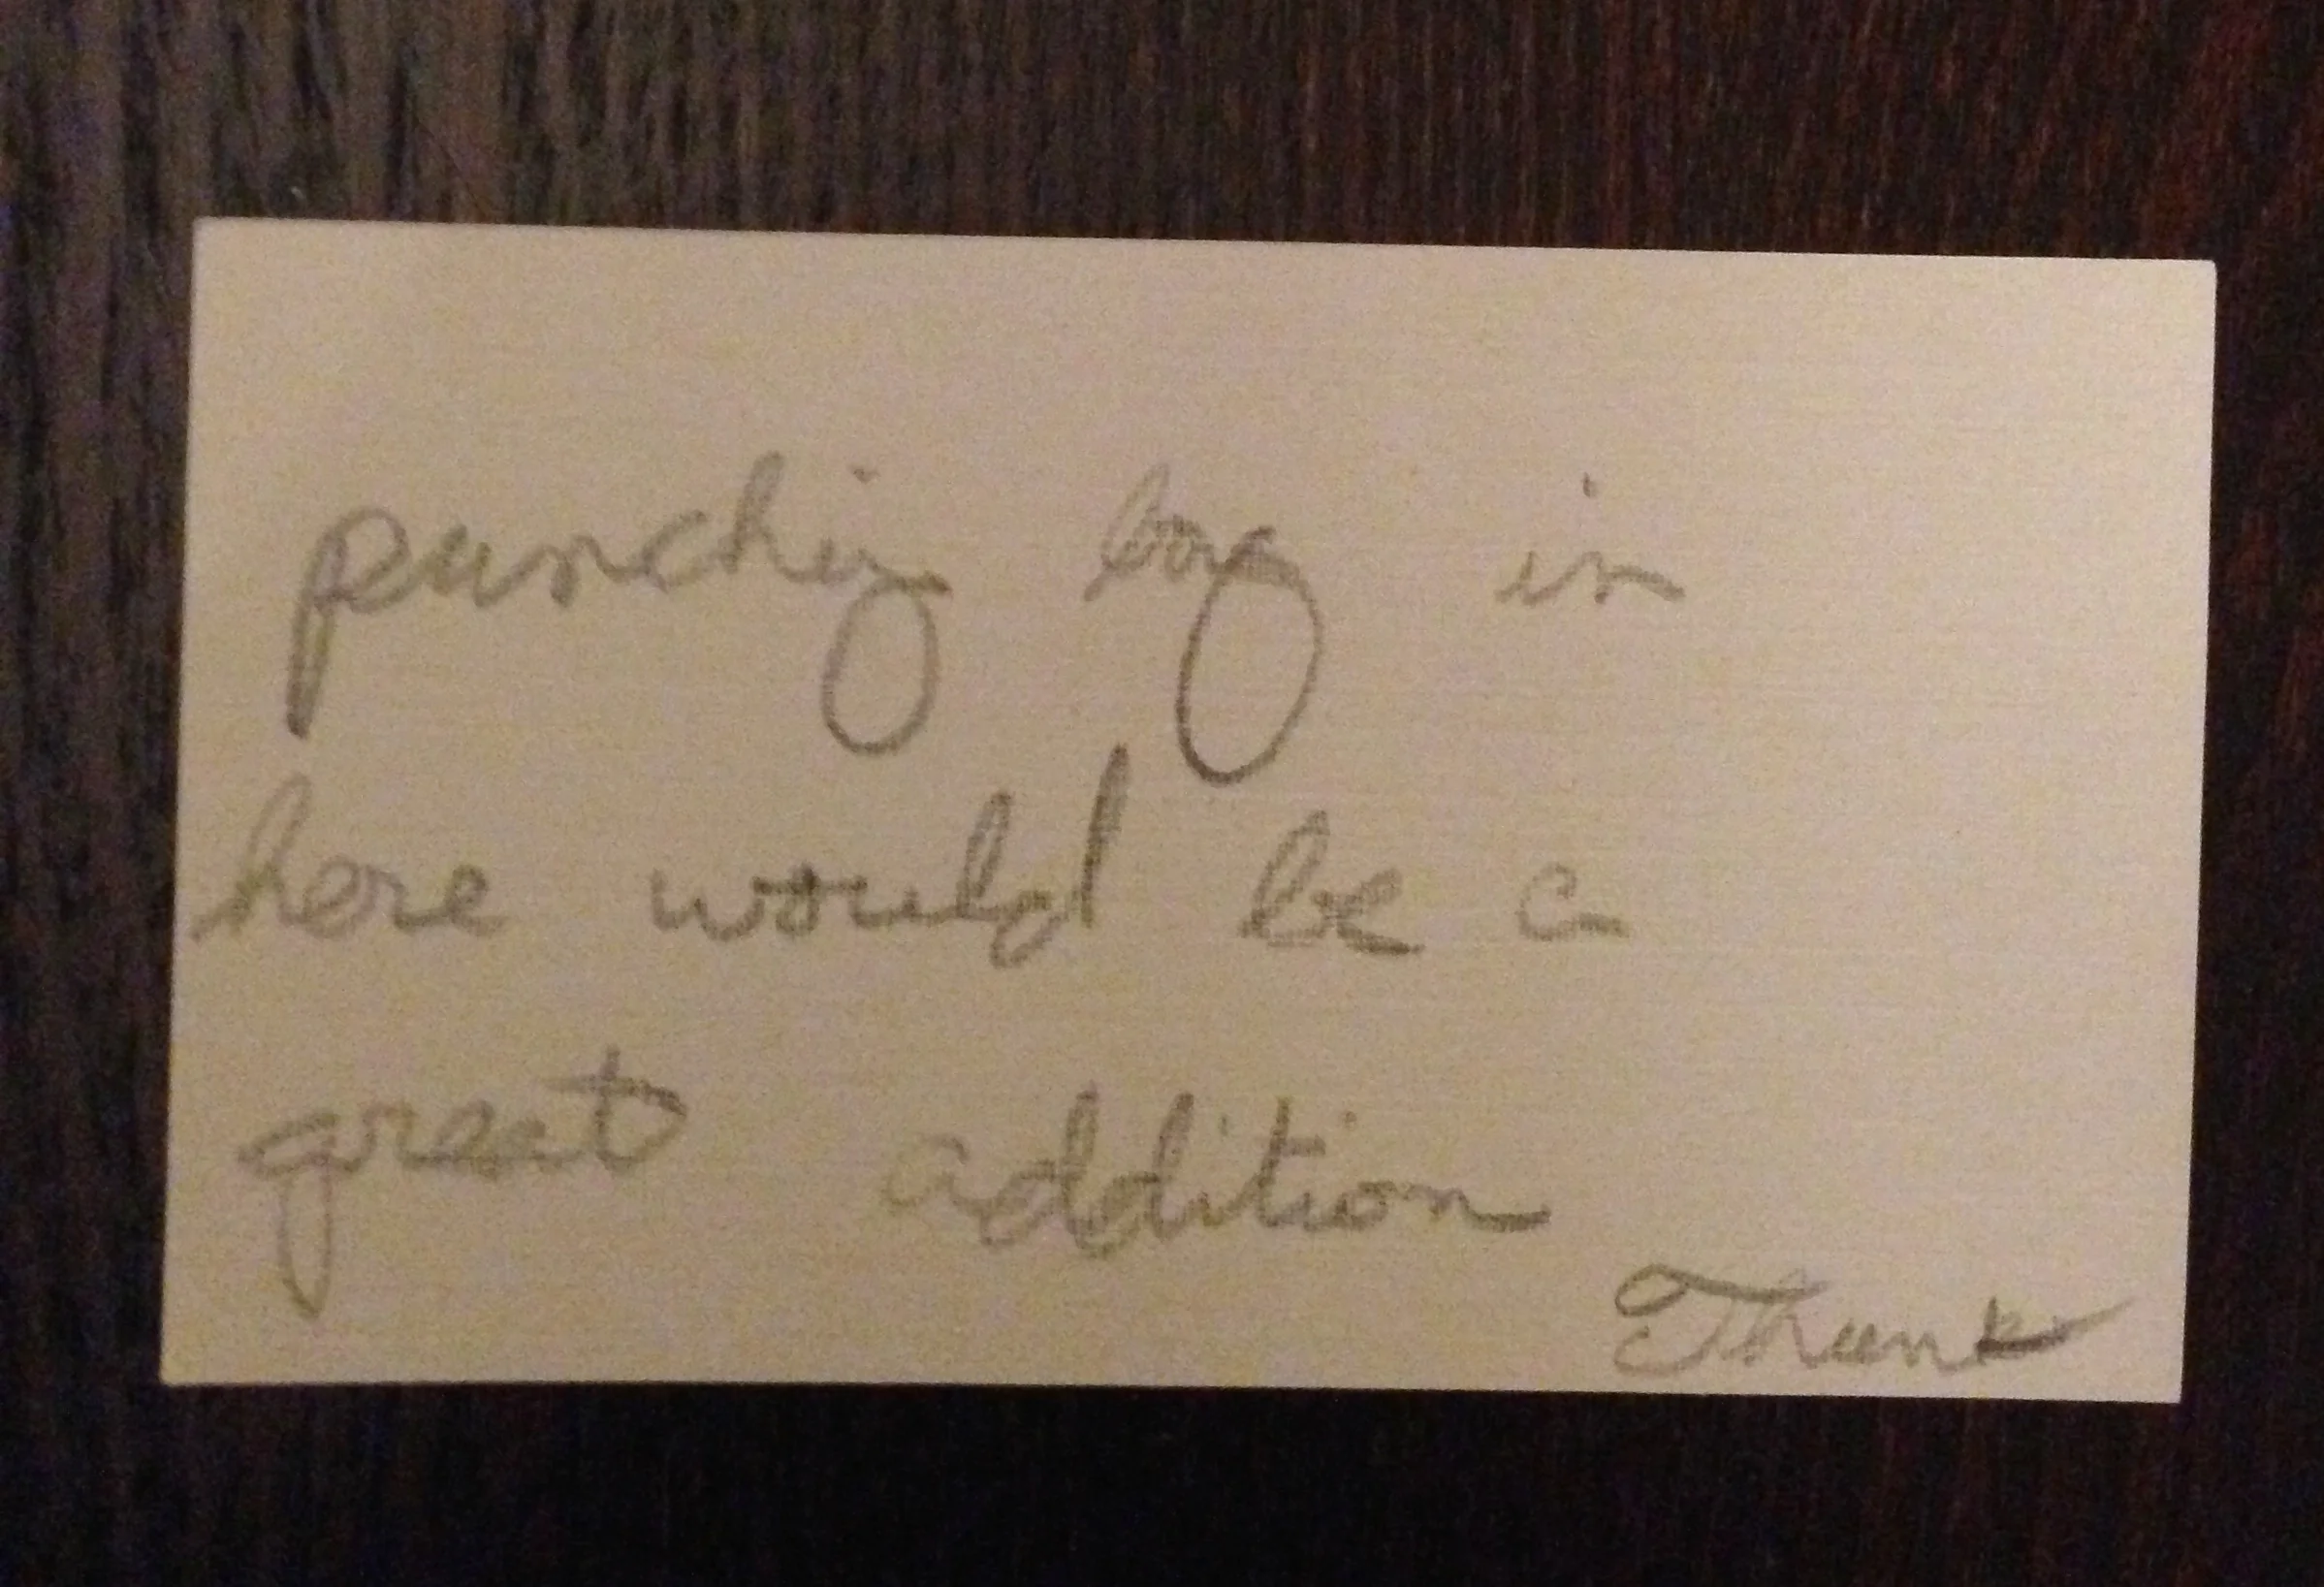 punching bag in
here would be a
great addition
Thanks